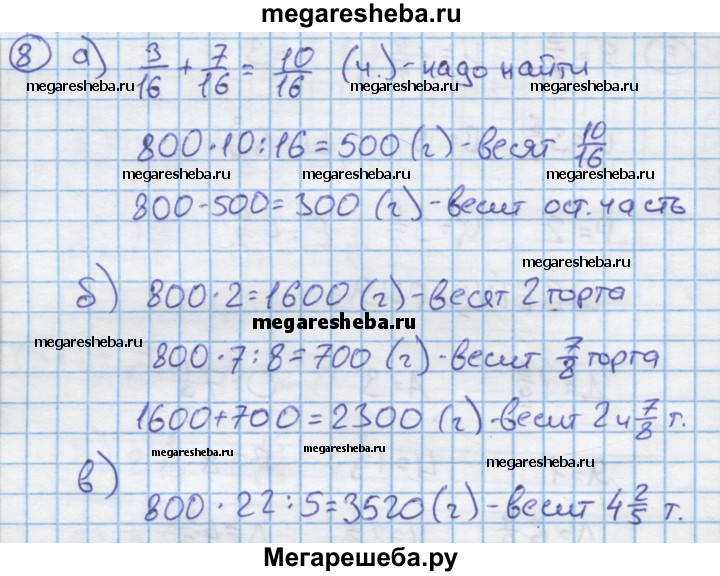 megaresheba.ru
8 а) 3/16 + 7/16 = 10/16 (ч.) - надо найти
megaresheba.ru megaresheba.ru megaresheba.ru megaresheba.ru
800·10:16=500 (г) - весят 10/16
megaresheba.ru megaresheba.ru megaresheba.ru
800-500=300 (г) - весит ост. часть
б) 800·2=1600 (г) - весят 2 торта
megaresheba.ru
megaresheba.ru
800·7:8=700 (г) - весит 7/8 торта
1600+700=2300 (г) - весит 2 и 7/8 т.
megaresheba.ru megaresheba.ru megaresheba.ru
в) 800·22:5=3520 (г) - весит 4 2/5 т.
Мегарешеба.ру